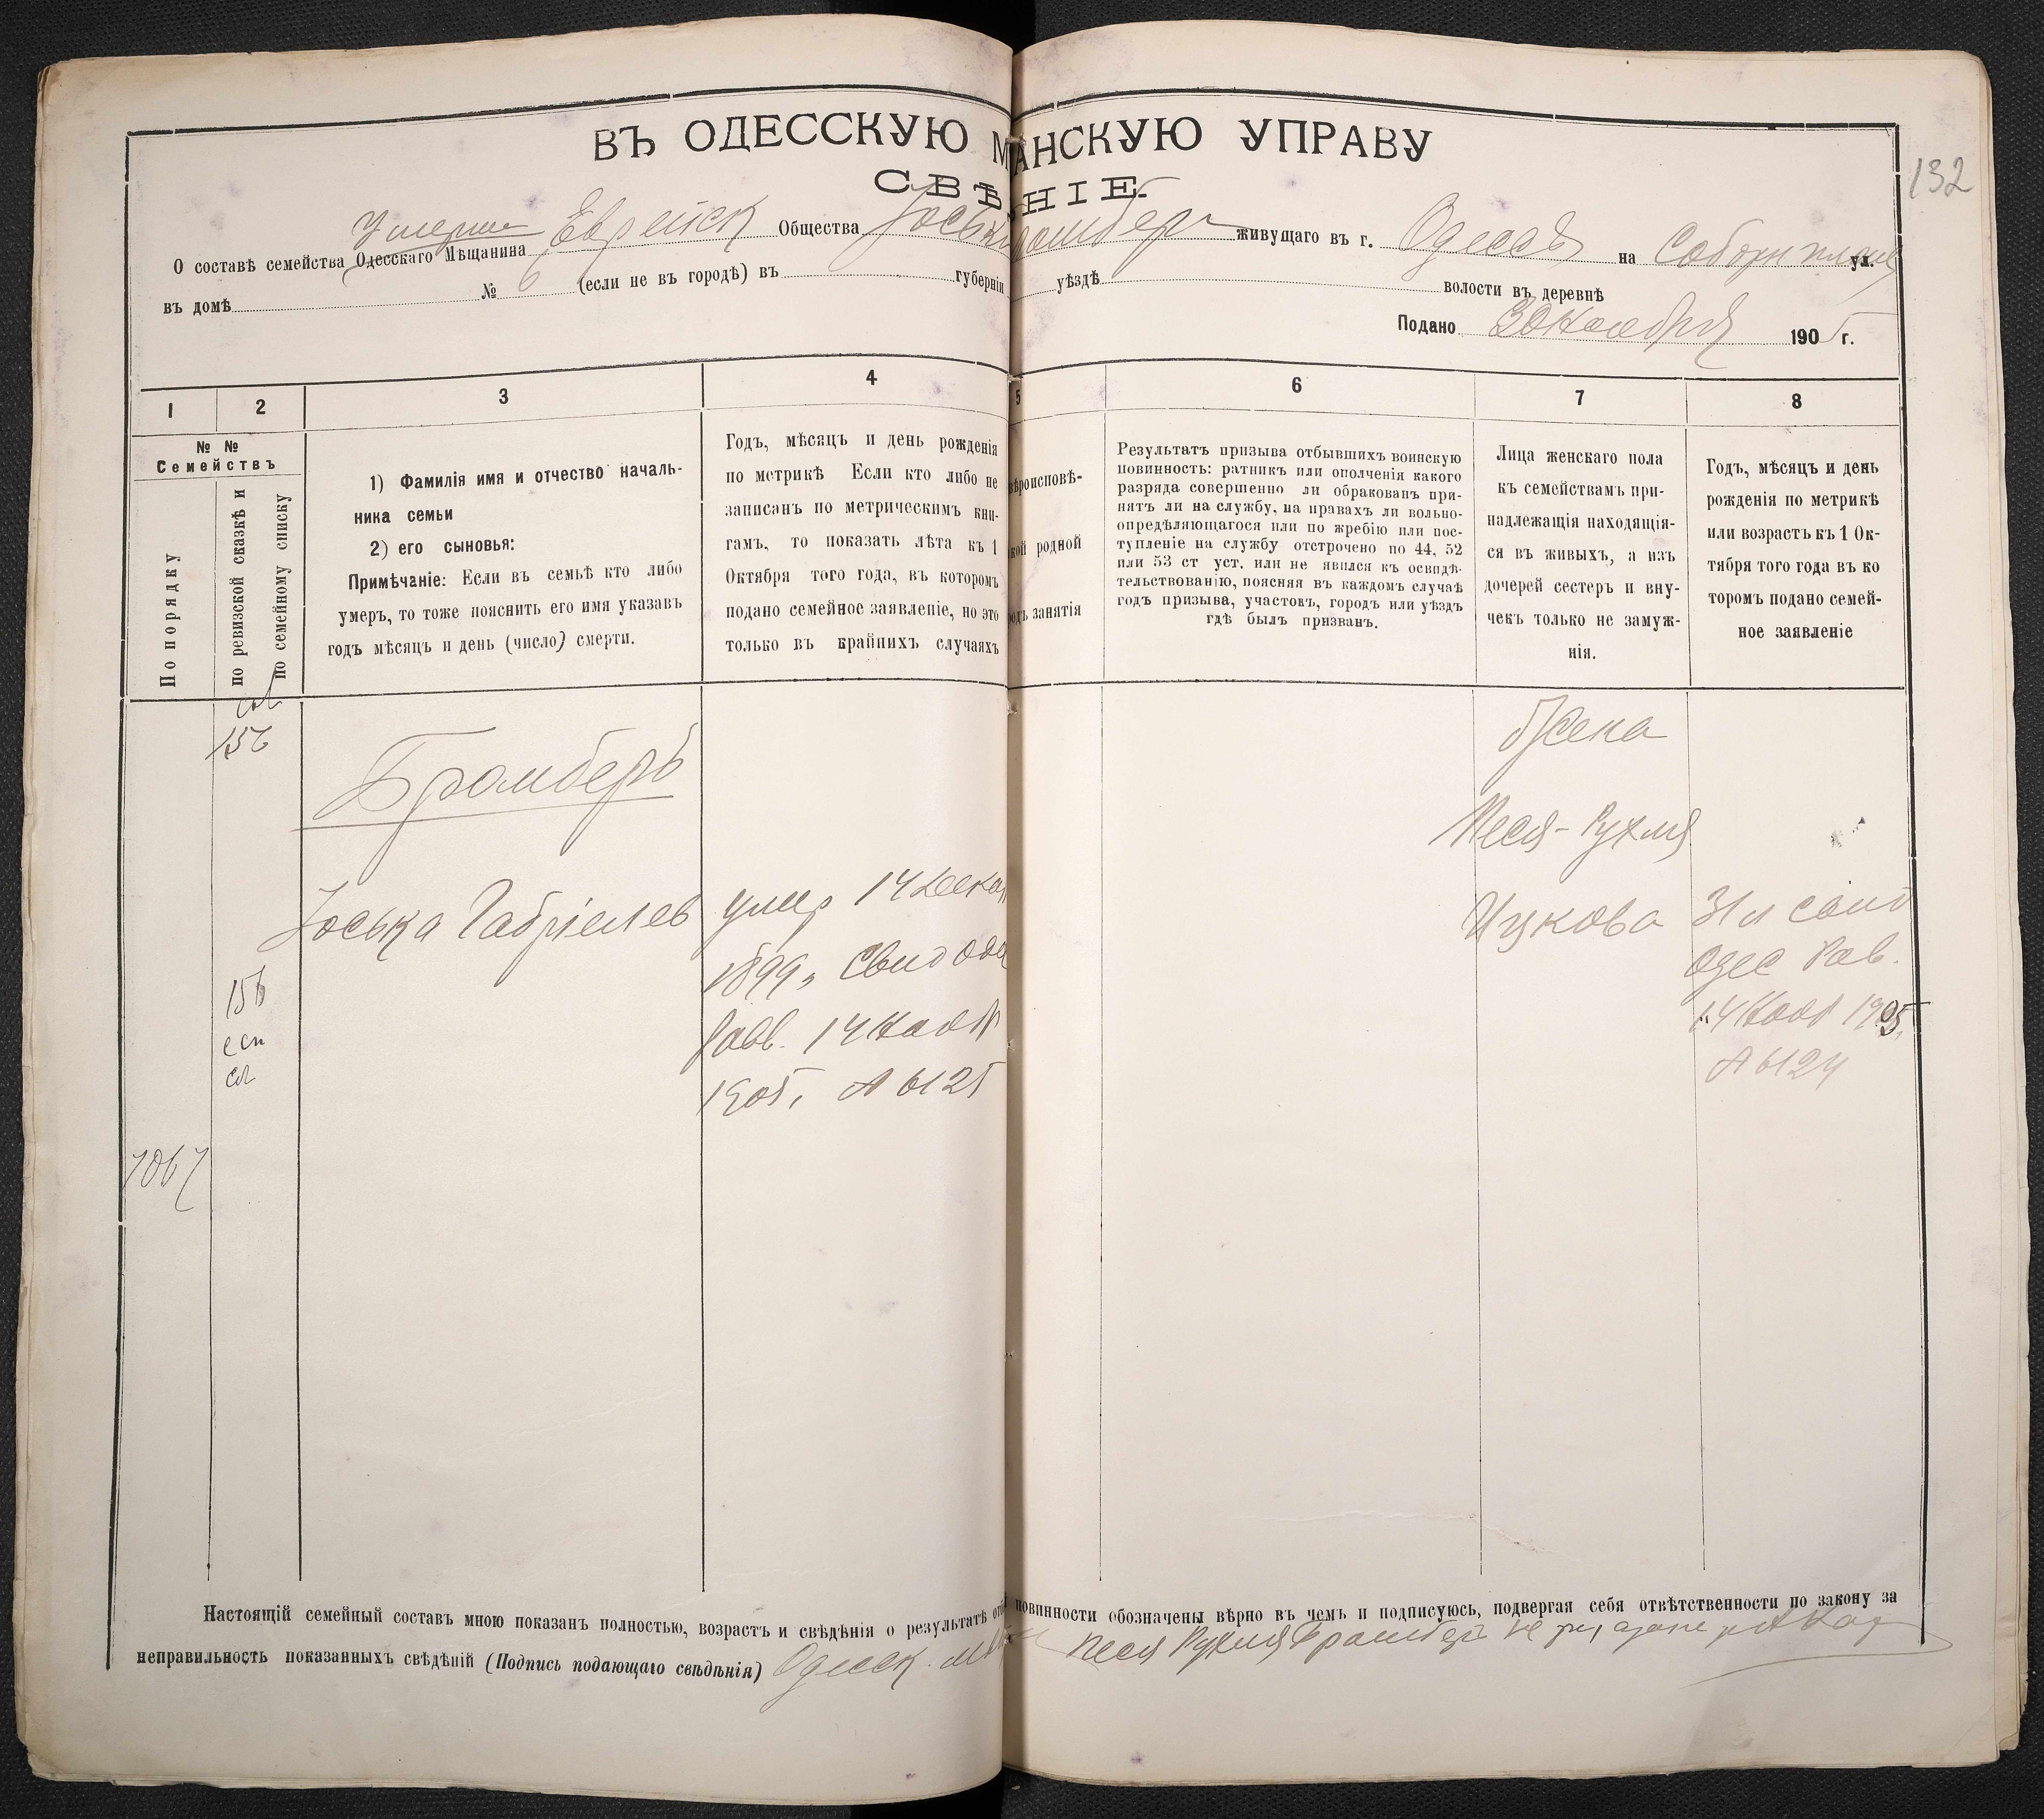 ВЪ ОДЕССКУЮ М АНСКУЮ УПРАВУ
СВѢ НІЕ.
132
О составѣ семейства Одесскаго Мѣщанина Еврейск Общества Йоськи ромберг живущаго въ г. Одессѣ на Соборн площ ул.
Умерш
въ домѣ № 6 (если не въ городѣ) въ губерніи уѣздѣ волости въ деревнѣ
Подано 30 Ноября 1905 г.
1 2 3 4 5 6 7 8
№ №
Семействъ
По порядку
по ревизской сказкѣ и
по семейному списку
1) Фамилія имя и отчество началь-
ника семьи
2) его сыновья:
Примѣчаніе: Если въ семьѣ кто либо
умер, то тоже пояснить его имя указавъ
годъ мѣсяцъ и день (число) смерти.
Годъ, мѣсяцъ и день рожденія
по метрикѣ Если кто либо не
записанъ по метрическимъ кни-
гамъ, то показать лѣта къ 1
Октября того года, въ которомъ
подано семейное заявленіе, но это
только въ крайнихъ случаяхъ
ѣроисповѣ-
кой родной
одъ занятія
Результатъ призыва отбывшихъ воинскую
повинность: ратникъ или ополченія какого
разряда совершенно ли обракованъ при-
нятъ ли на службу, на правахъ ли вольно-
опредѣляющагося или по жребію или пос-
тупленіе на службу отстрочено по 44, 52
или 53 ст уст. или не явился къ освидѣ-
тельствованію, поясняя въ каждомъ случаѣ
годъ призыва, участокъ, городъ или уѣздъ
гдѣ былъ призванъ.
Лица женскаго пола
къ семействамъ при-
надлежащія находящія-
ся въ живыхъ, а изъ
дочерей сестеръ и вну-
чекъ только не замуж-
нія.
Годъ, мѣсяцъ и день
рожденія по метрикѣ
или возрастъ къ 1 Ок-
тября того года въ ко
торомъ подано семей-
ное заявленіе
156
Бромберъ
Йоська Габріелев
умер 14 Декаб
1899, Свид Одес
Равв. 14 Нояб
1905, № 6125
156
7067
Жена
Песя-Рухля
Ицкова
31 л свид
Одес Рав.
14 Нояб 1905,
№ 6124
Настоящій семейный составъ мною показан полностью, возраст и свѣдѣнія о результатѣ отб повинности обозначены вѣрно въ чемъ и подписуюсь, подвергая себя отвѣтственности по закону за
неправильность показанныхъ свѣдѣній (Подпись подающаго свѣдѣнія) Одесск. Песя Рухля Бромберг